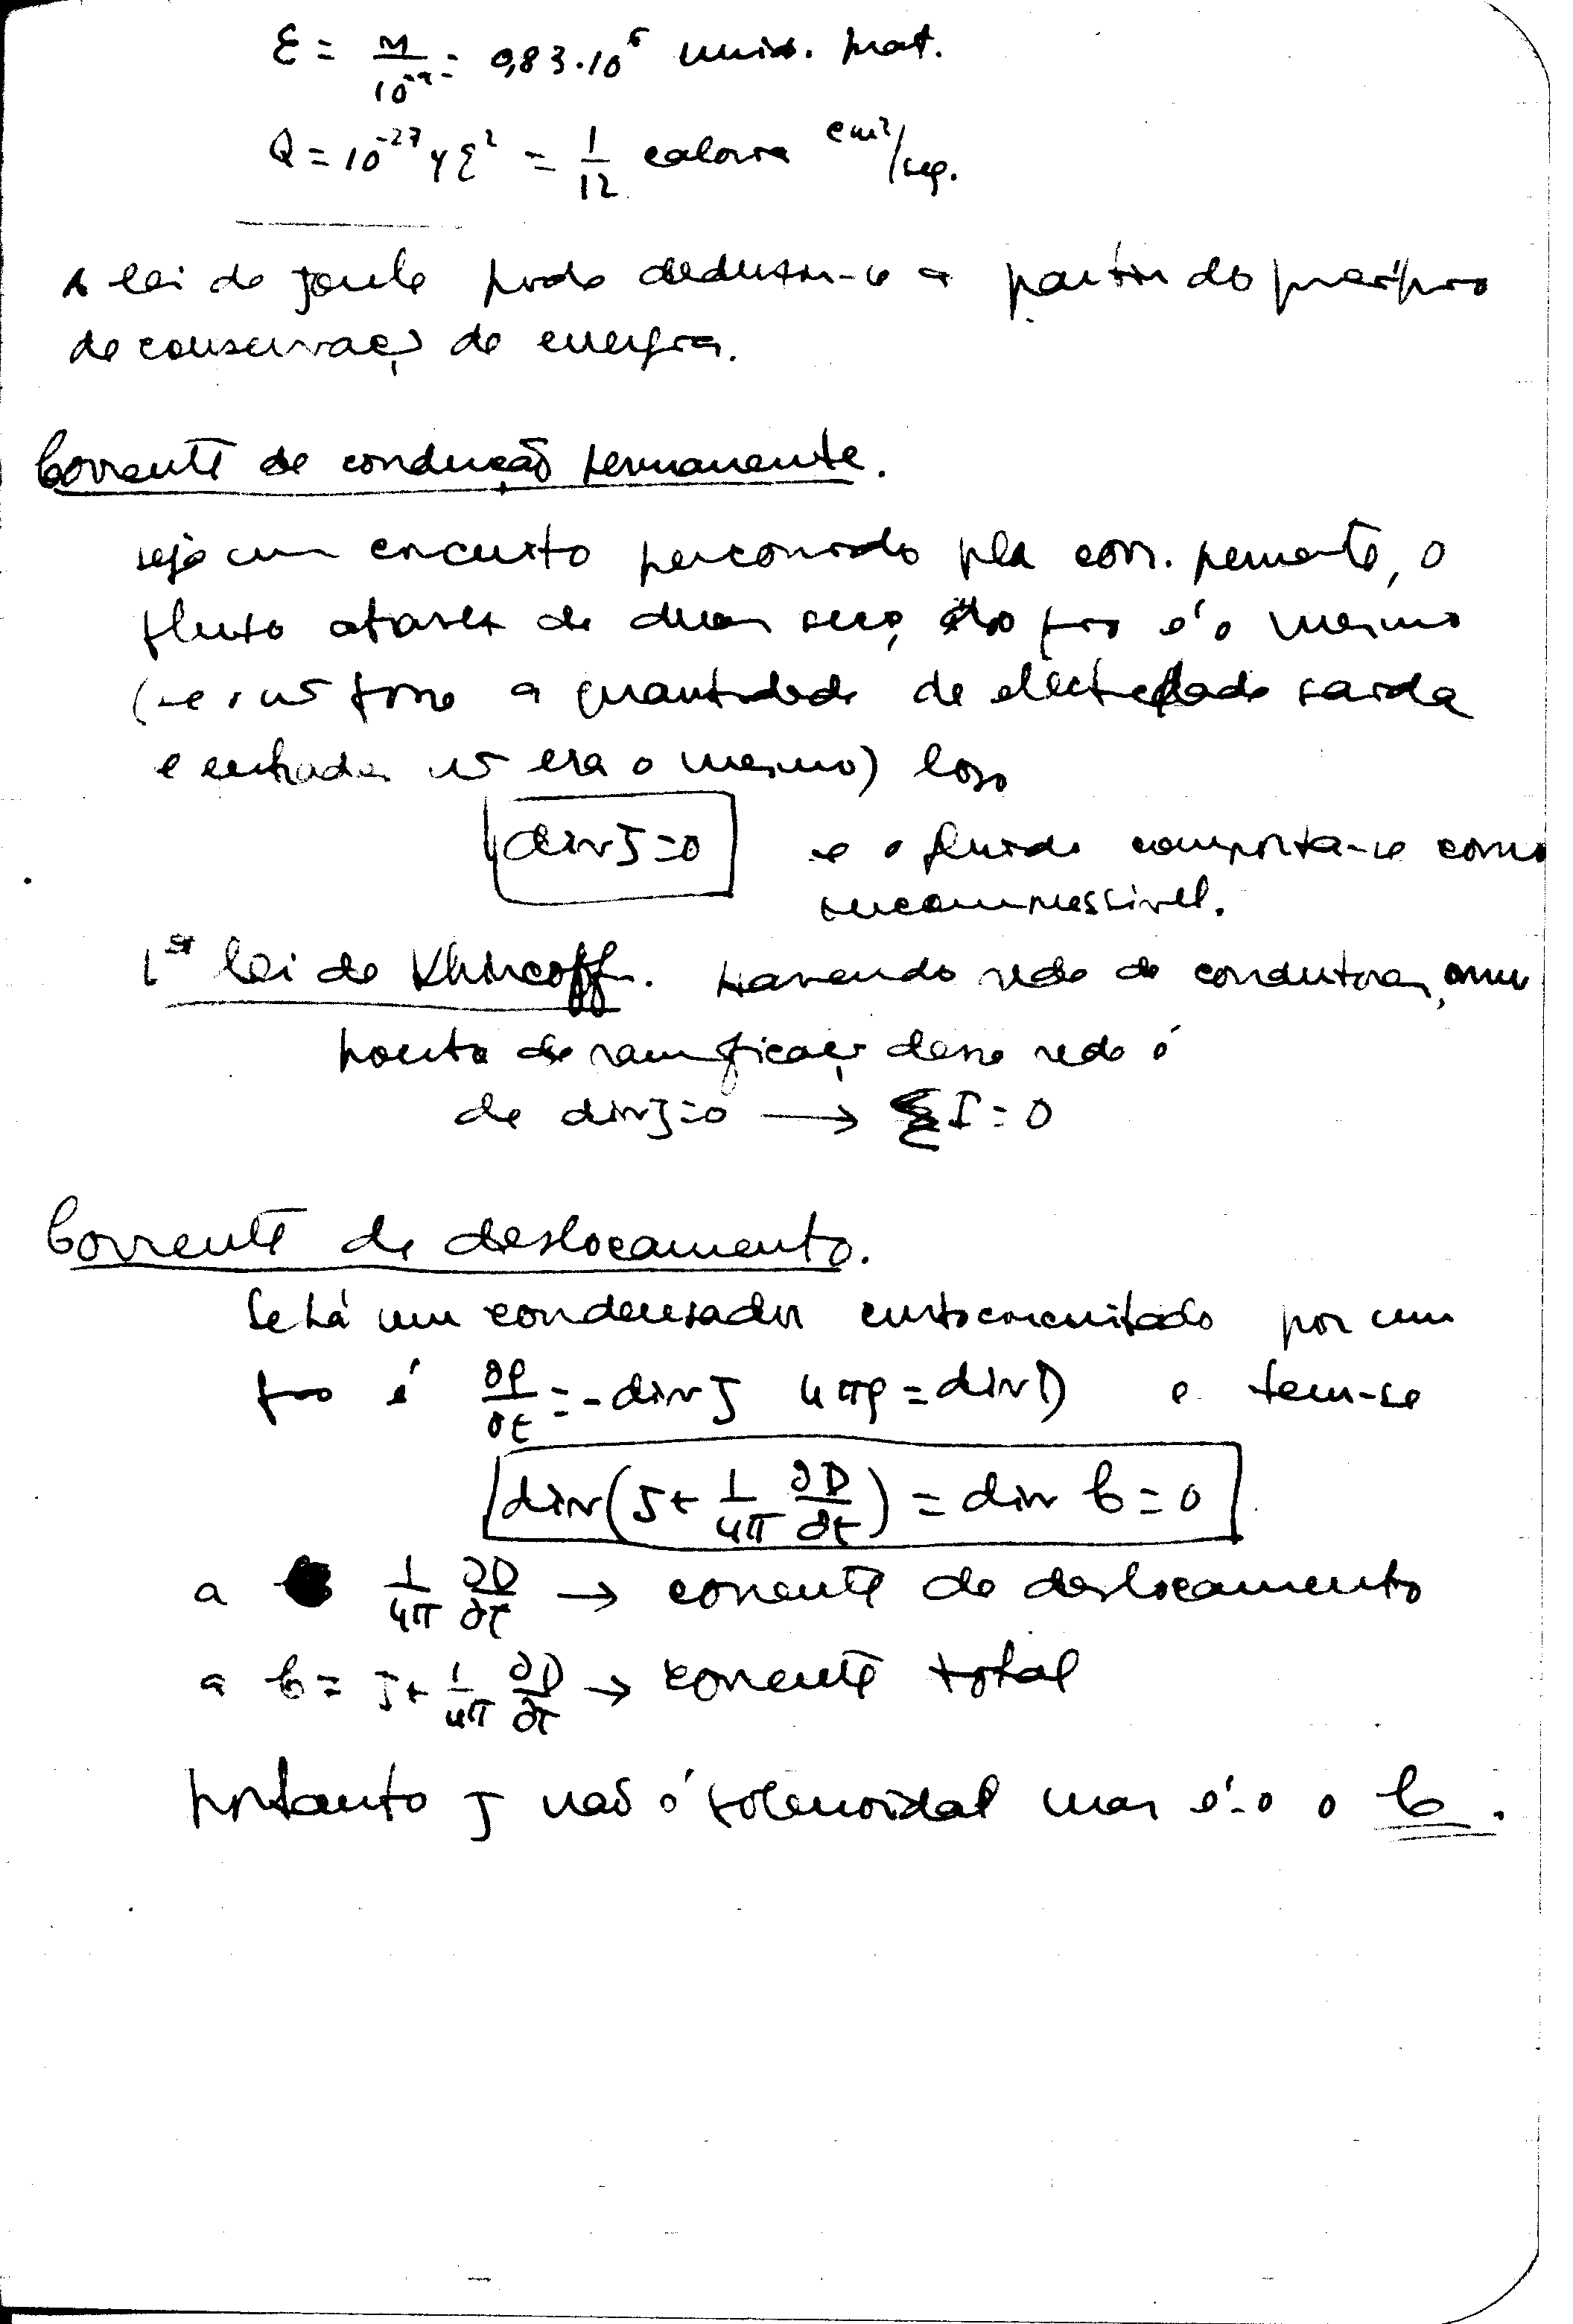 ε = M/10⁻⁹ = 0,83·10⁶ unid. prat.
Q = 10⁻²⁷ γ ε² = 1/12 caloria cm²/seg.
A lei de Joule pode deduzir-se a partir do princípio
de conservaç de energia.
Corrente de condução permanente.
seja um circuito percorrido pla corr. permente, o
fluxo atraves de duas secç do fio é o mesmo
(se o ñ fosse a quantidade de electcidade saida
e entrada ñ era o mesmo) logo
div J = 0 e o fluido comporta-se como
incompressivel.
1ª lei de Khircoff. Havendo rede de condutores, num
ponto de ramificaç dessa rede é
de div J = 0 → ΣI = 0
Corrente de deslocamento.
Se há um condensador curtocircuitado por um
fio é ∂ρ/∂t = -div J 4πρ = div D e tem-se
div(J + 1/4π ∂D/∂t) = div C = 0
a 1/4π ∂D/∂t → corrente de deslocamento
a C = J + 1/4π ∂D/∂t → corrente total
portanto J não é solenoidal mas é-o o C.